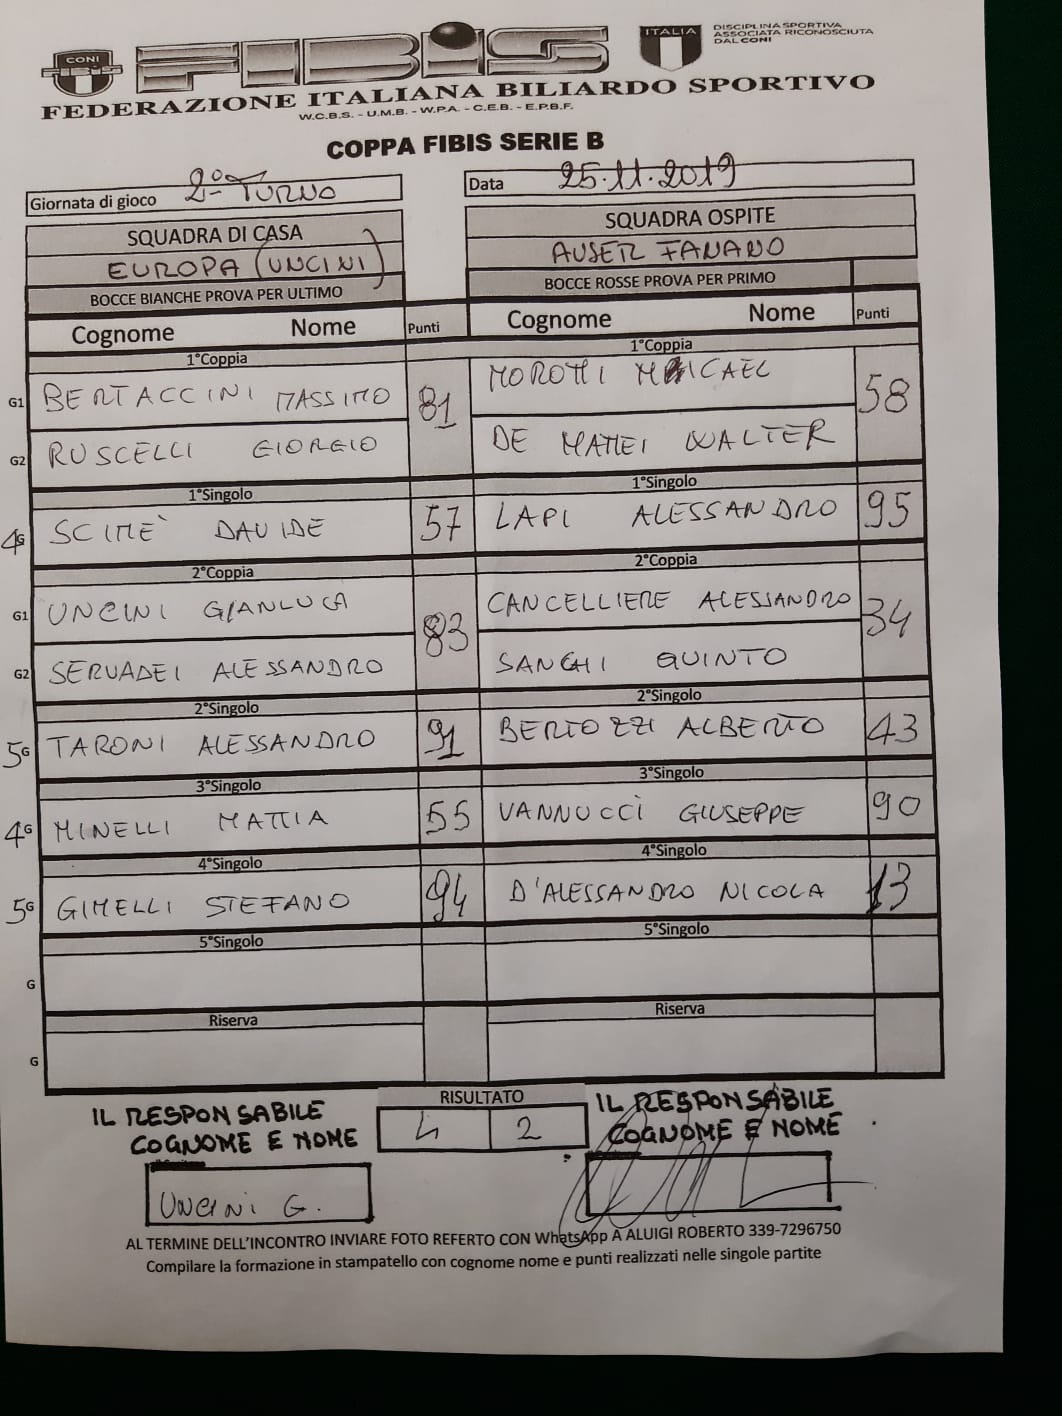 CONI
FIBIS
FIBIS
ITALIA
DISCIPLINA SPORTIVA
ASSOCIATA RICONOSCIUTA
DAL CONI
FEDERAZIONE ITALIANA BILIARDO SPORTIVO
W.C.B.S. - U.M.B. - W.P.A. - C.E.B. - E.P.B.F.
COPPA FIBIS SERIE B
Giornata di gioco 2° TURNO Data 25.11.2019
SQUADRA DI CASA SQUADRA OSPITE
EUROPA (UNCINI) AUSER FANANO
BOCCE BIANCHE PROVA PER ULTIMO BOCCE ROSSE PROVA PER PRIMO
Cognome Nome Punti Cognome Nome Punti
1°Coppia 1°Coppia
G1 BERTACCINI MASSIMO 81 MOROTTI MICAEL 58
G2 RUSCELLI GIORGIO DE MATTEI WALTER
1°Singolo 1°Singolo
4G SCIMÈ DAVIDE 57 LAPI ALESSANDRO 95
2°Coppia 2°Coppia
G1 UNCINI GIANLUCA 83 CANCELLIERE ALESSANDRO 34
G2 SERVADEI ALESSANDRO SANCHI QUINTO
2°Singolo 2°Singolo
5G TARONI ALESSANDRO 91 BERTOZZI ALBERTO 43
3°Singolo 3°Singolo
4G MINELLI MATTIA 55 VANNUCCI GIUSEPPE 90
4°Singolo 4°Singolo
5G GIMELLI STEFANO 94 D'ALESSANDRO NICOLA 13
5°Singolo 5°Singolo
G
Riserva Riserva
G
RISULTATO
4 2
IL RESPONSABILE IL RESPONSABILE
COGNOME E NOME COGNOME E NOME
UNCINI G.
AL TERMINE DELL'INCONTRO INVIARE FOTO REFERTO CON WhatsApp A ALUIGI ROBERTO 339-7296750
Compilare la formazione in stampatello con cognome nome e punti realizzati nelle singole partite